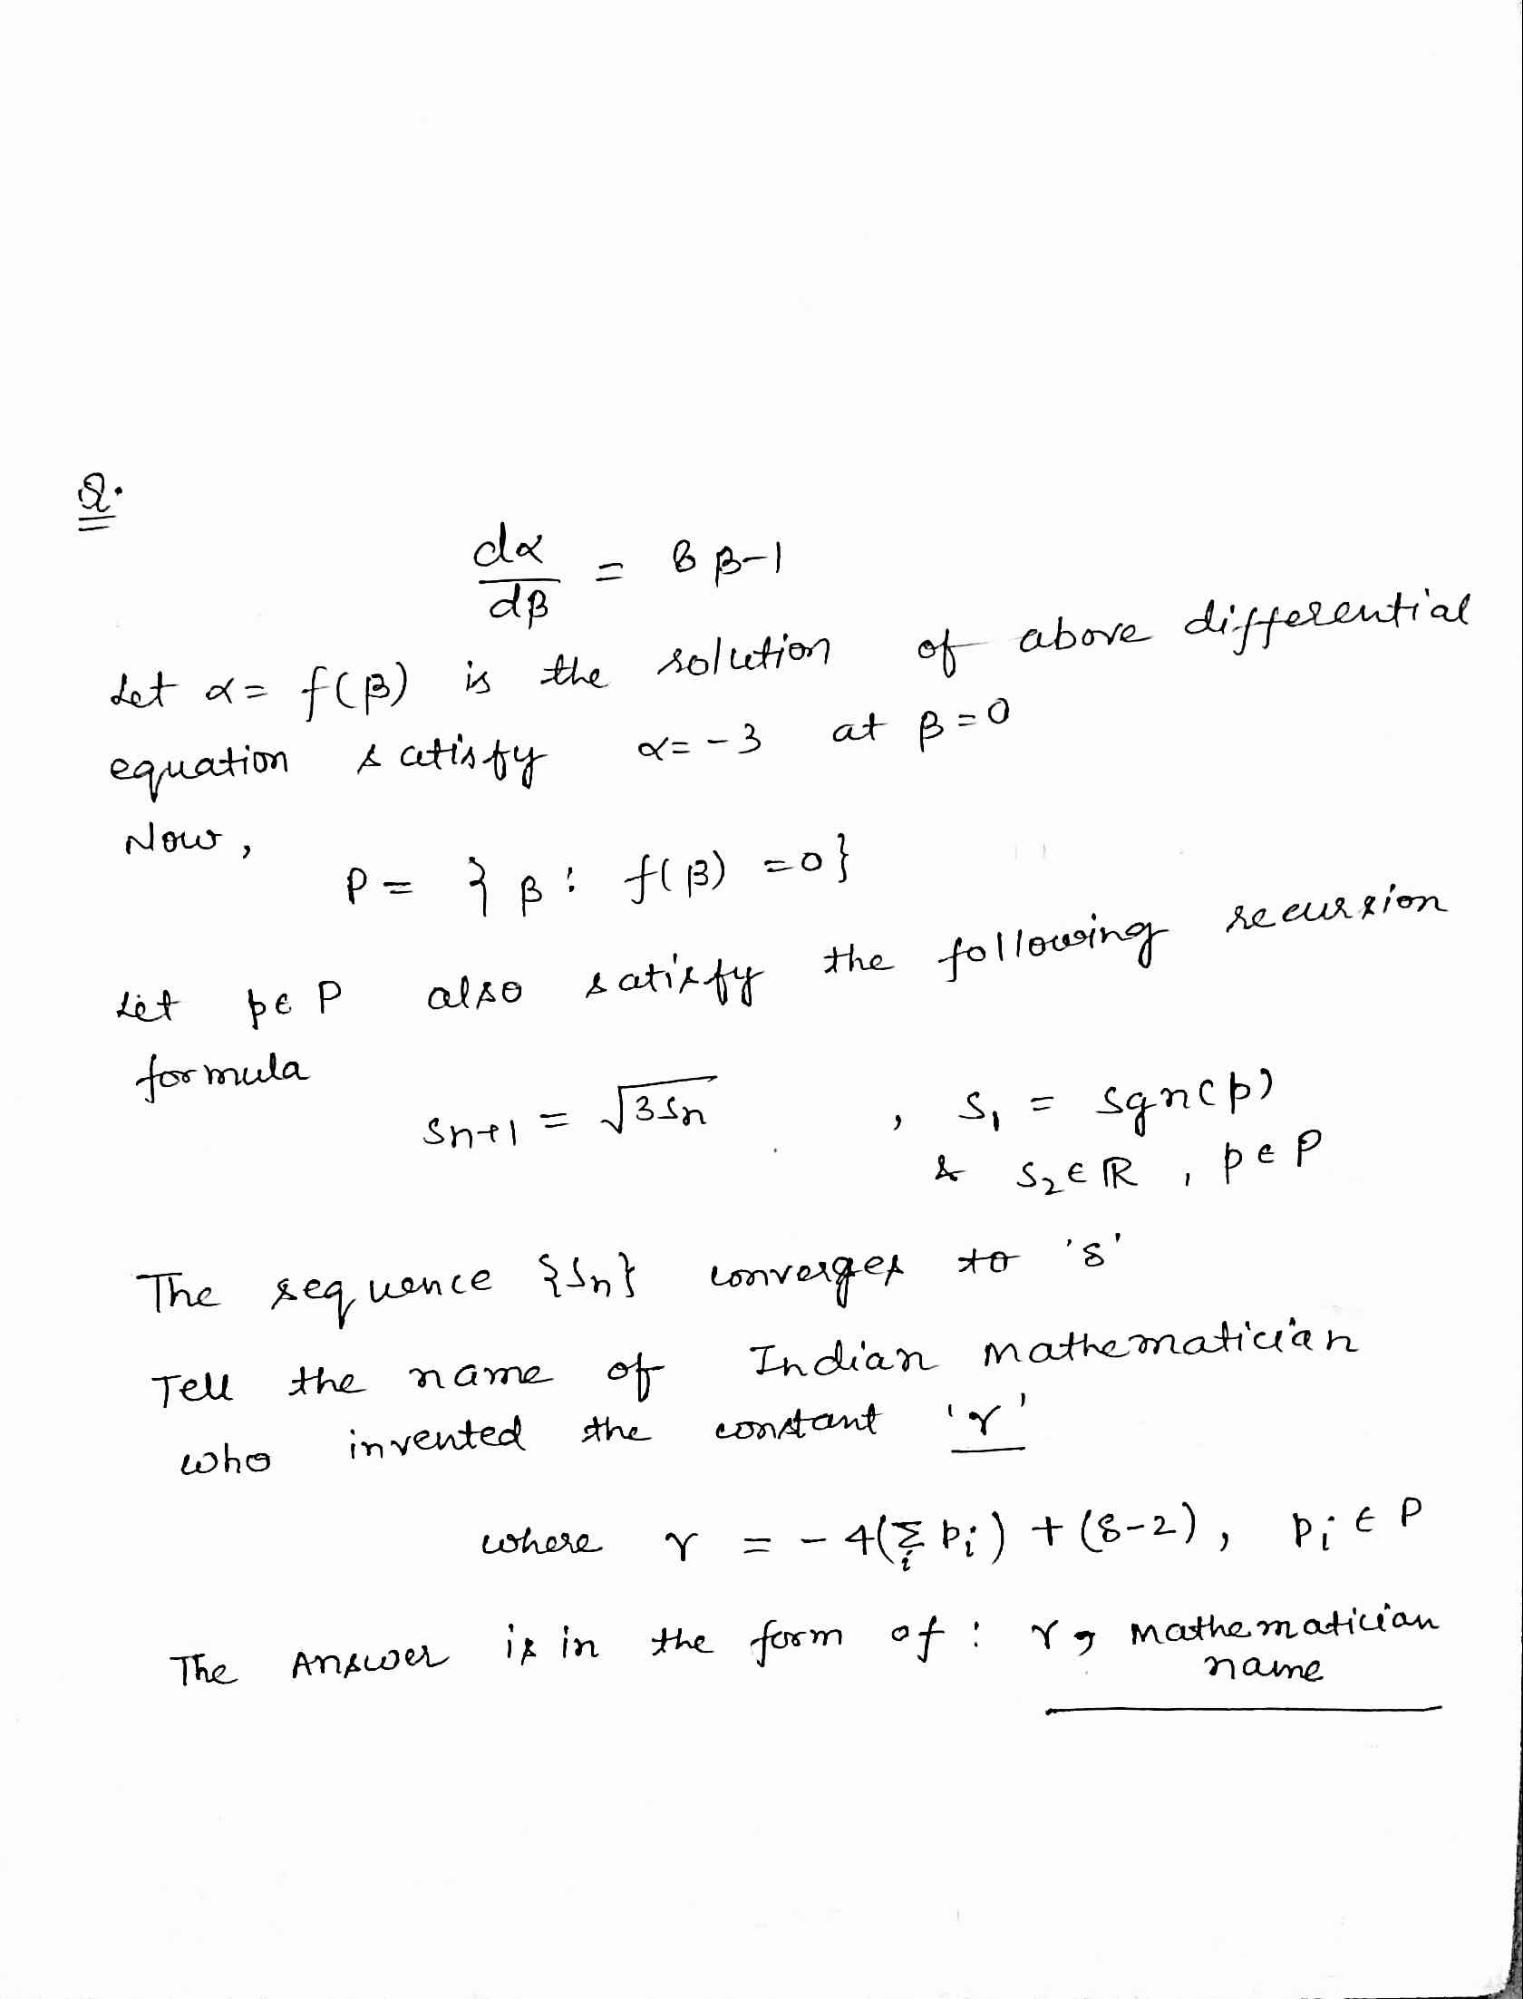 Q.
dα/dβ = 8β-1
Let α = f(β) is the solution of above differential
equation satisfy α = -3 at β = 0
Now,
P = { β : f(β) = 0 }
Let p ∈ P also satisfy the following recursion
formula
Sn+1 = √3Sn , S1 = sgn(p)
& S2 ∈ ℝ , p ∈ P
The sequence {Sn} converges to 'δ'
Tell the name of Indian Mathematician
who invented the constant 'γ'
where γ = -4(Σi pi) + (δ-2), pi ∈ P
The Answer is in the form of : γ, Mathematician
name